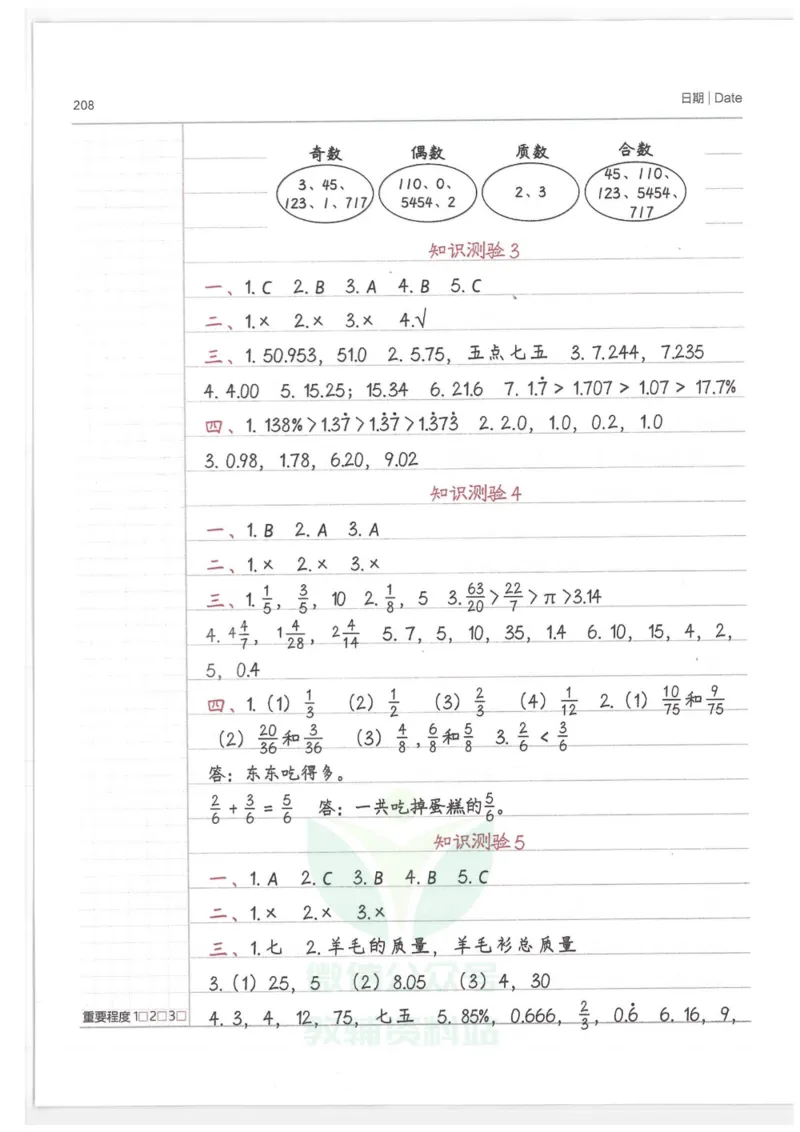 208
日期 | Date
奇数 偶数 质数 合数
3、45、 110、0、 2、3 45、110、
123、1、717 5454、2 123、5454、
717
知识测验3
一、1. C 2. B 3. A 4. B 5. C
二、1.× 2.× 3.× 4.√
三、1. 50.953, 51.0 2. 5.75, 五点七五 3. 7.244, 7.235
4. 4.00 5. 15.25; 15.34 6. 21.6 7. 1.7̇ > 1.707 > 1.07 > 17.7%
四、1. 138% > 1.37̇ > 1.3̇7̇ > 1.3̇73̇ 2. 2.0, 1.0, 0.2, 1.0
3. 0.98, 1.78, 6.20, 9.02
知识测验4
一、1. B 2. A 3. A
二、1.× 2.× 3.×
三、1. 1/5, 3/5, 10 2. 1/8, 5 3. 63/20 > 22/7 > π > 3.14
4. 4 4/7, 1 4/28, 2 4/14 5. 7, 5, 10, 35, 1.4 6. 10, 15, 4, 2,
5, 0.4
四、1. (1) 1/3 (2) 1/2 (3) 2/3 (4) 1/12 2. (1) 10/75 和 9/75
(2) 20/36 和 3/36 (3) 4/8, 6/8 和 5/8 3. 2/6 < 3/6
答: 东东吃得多。
2/6 + 3/6 = 5/6 答: 一共吃掉蛋糕的5/6。
知识测验5
一、1. A 2. C 3. B 4. B 5. C
二、1.× 2.× 3.×
三、1. 七 2. 羊毛的质量, 羊毛衫总质量
3. (1) 25, 5 (2) 8.05 (3) 4, 30
4. 3, 4, 12, 75, 七五 5. 85%, 0.666, 2/3, 0.6̇ 6. 16, 9,
重要程度 1□2□3□
教辅资料站